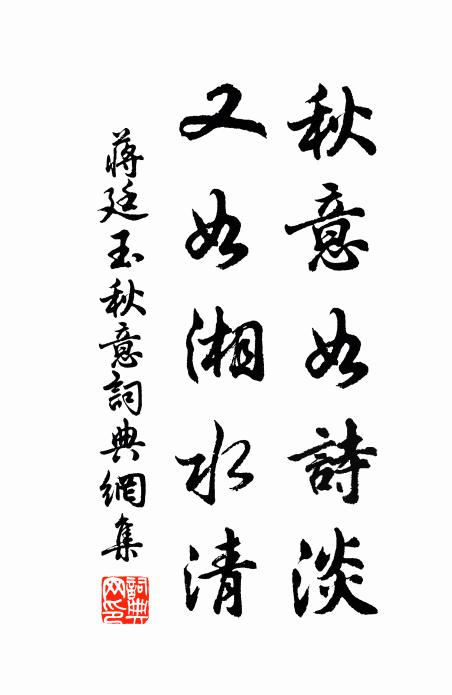 秋意如詩淡
又如湘水清
蔣廷玉秋意詞典網集
詞典網印